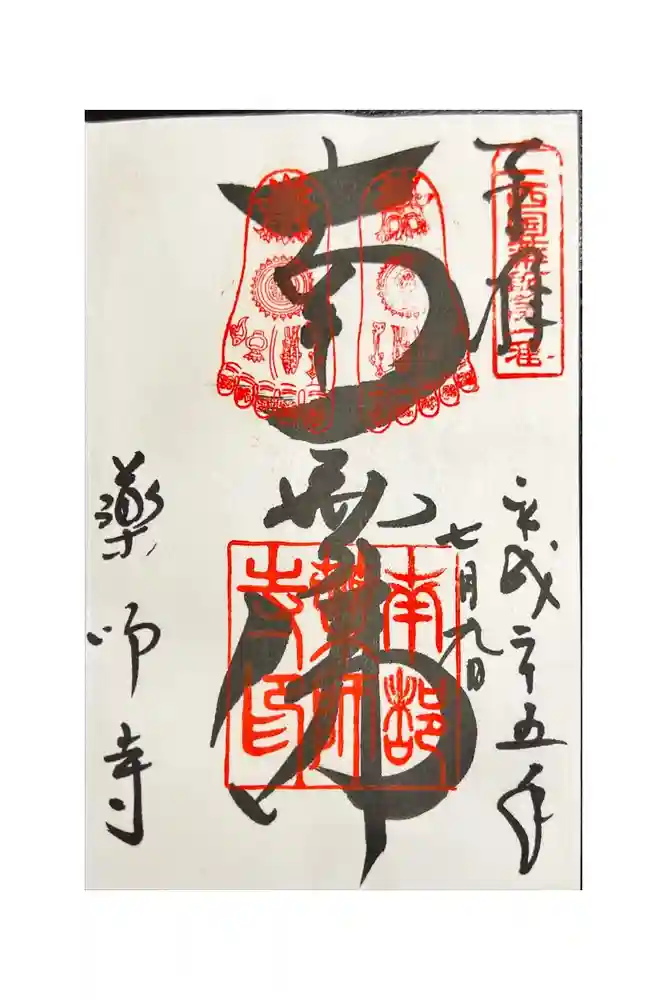 奉拝
西国薬師第一番
平成二十五年
七月九日
南無佛
南都薬師寺印
薬師寺